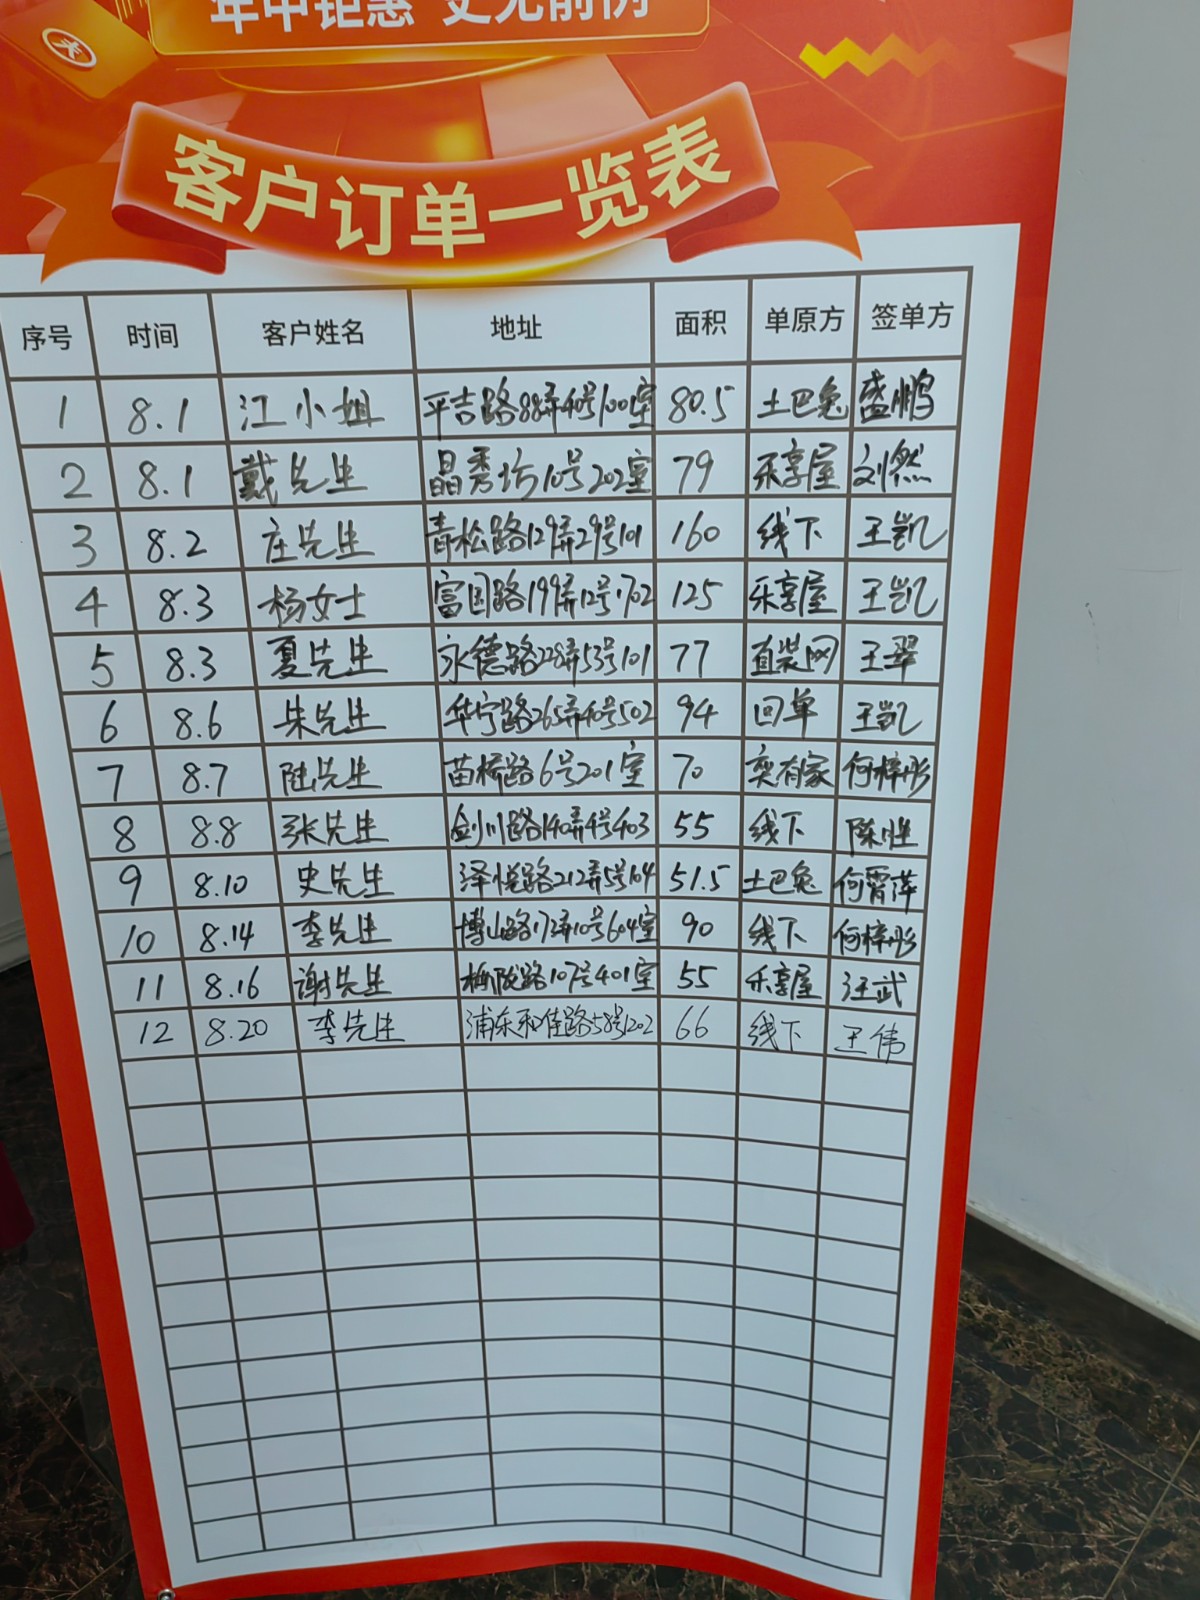 年中钜惠 史无前例
客户订单一览表
序号 时间 客户姓名 地址 面积 单原方 签单方
1 8.1 江小姐 平吉路88弄40号100室 80.5 土巴兔 盛鹏
2 8.1 戴先生 晶秀坊10号202室 79 乐享屋 刘然
3 8.2 庄先生 青松路129弄29号101 160 线下 王凯
4 8.3 杨女士 富国路199弄12号702 125 乐享屋 王凯
5 8.3 夏先生 永德路228弄53号101 77 直装网 王翠
6 8.6 朱先生 华宁路265弄40号502 94 回单 王凯
7 8.7 陆先生 苗桥路6号201室 70 奕有家 何梓彤
8 8.8 张先生 剑川路140弄4号403 55 线下 陈胜
9 8.10 史先生 泽悦路212弄5号104 51.5 土巴兔 何霄萍
10 8.14 李先生 博山路172弄10号604室 90 线下 何梓彤
11 8.16 谢先生 梅陇路107号401室 55 乐享屋 汪武
12 8.20 李先生 浦东和佳路58号1202 66 线下 王伟